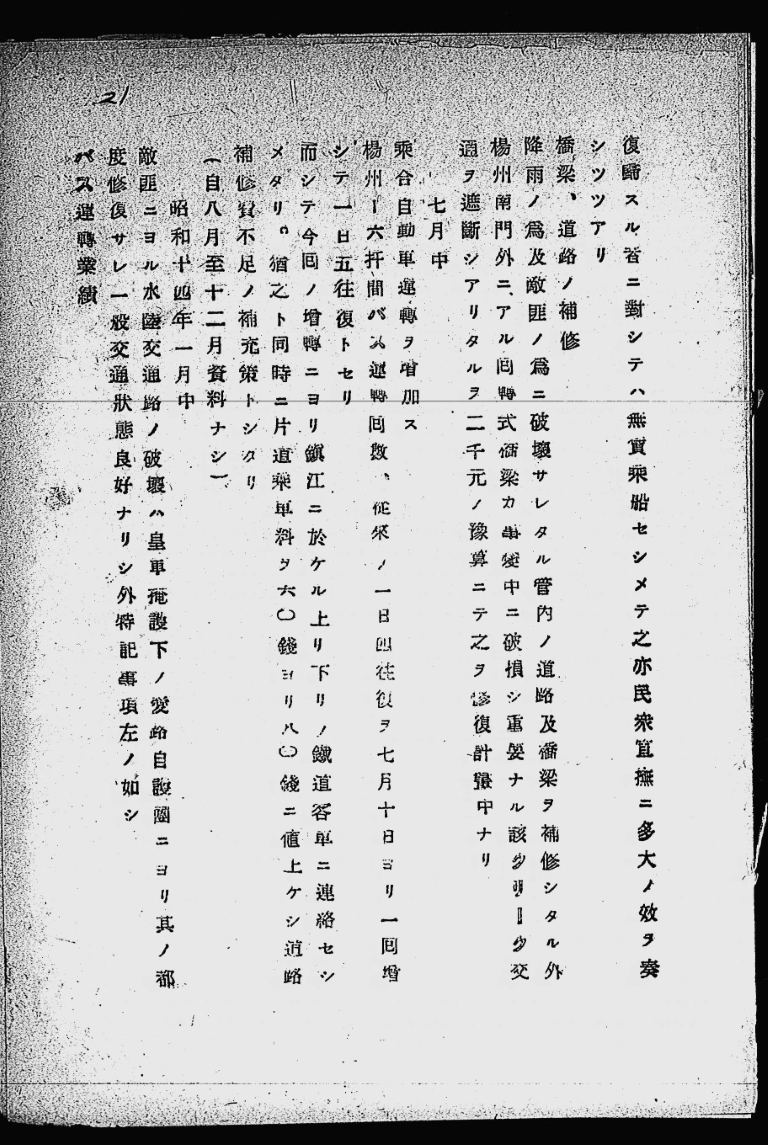 21
復歸スル者ニ對シテハ無賃乘船セシメテ之亦民衆宣撫ニ多大ノ效ヲ奏
シツツアリ
橋梁、道路ノ補修
降雨ノ爲及敵匪ノ爲ニ破壞サレタル管内ノ道路及橋梁ヲ補修シタル外
楊州南門外ニアル回轉式橋梁カ事變中ニ破損シ重要ナル該クリーク交
通ヲ遮斷シアリタルヲ二千元ノ豫算ニテ之ヲ修復計畫中ナリ
七月中
乘合自動車運轉ヲ增加ス
楊州ー六圩間バス運轉回數、從來ノ一日四往復ヲ七月十日ヨリ一回增
シテ一日五往復トセリ
而シテ今回ノ增轉ニヨリ鎭江ニ於ケル上リ下リノ鐵道客車ニ連絡セシ
メタリ。猶之ト同時ニ片道乘車料ヲ六〇錢ヨリ八〇錢ニ値上ケシ道路
補修費不足ノ補充策トシタリ
(自八月至十二月資料ナシ)
昭和十四年一月中
敵匪ニヨル水陸交通路ノ破壞ハ皇軍掩護下ノ愛路自護團ニヨリ其ノ都
度修復サレ一般交通狀態良好ナリシ外特記事項左ノ如シ
バス運轉業績